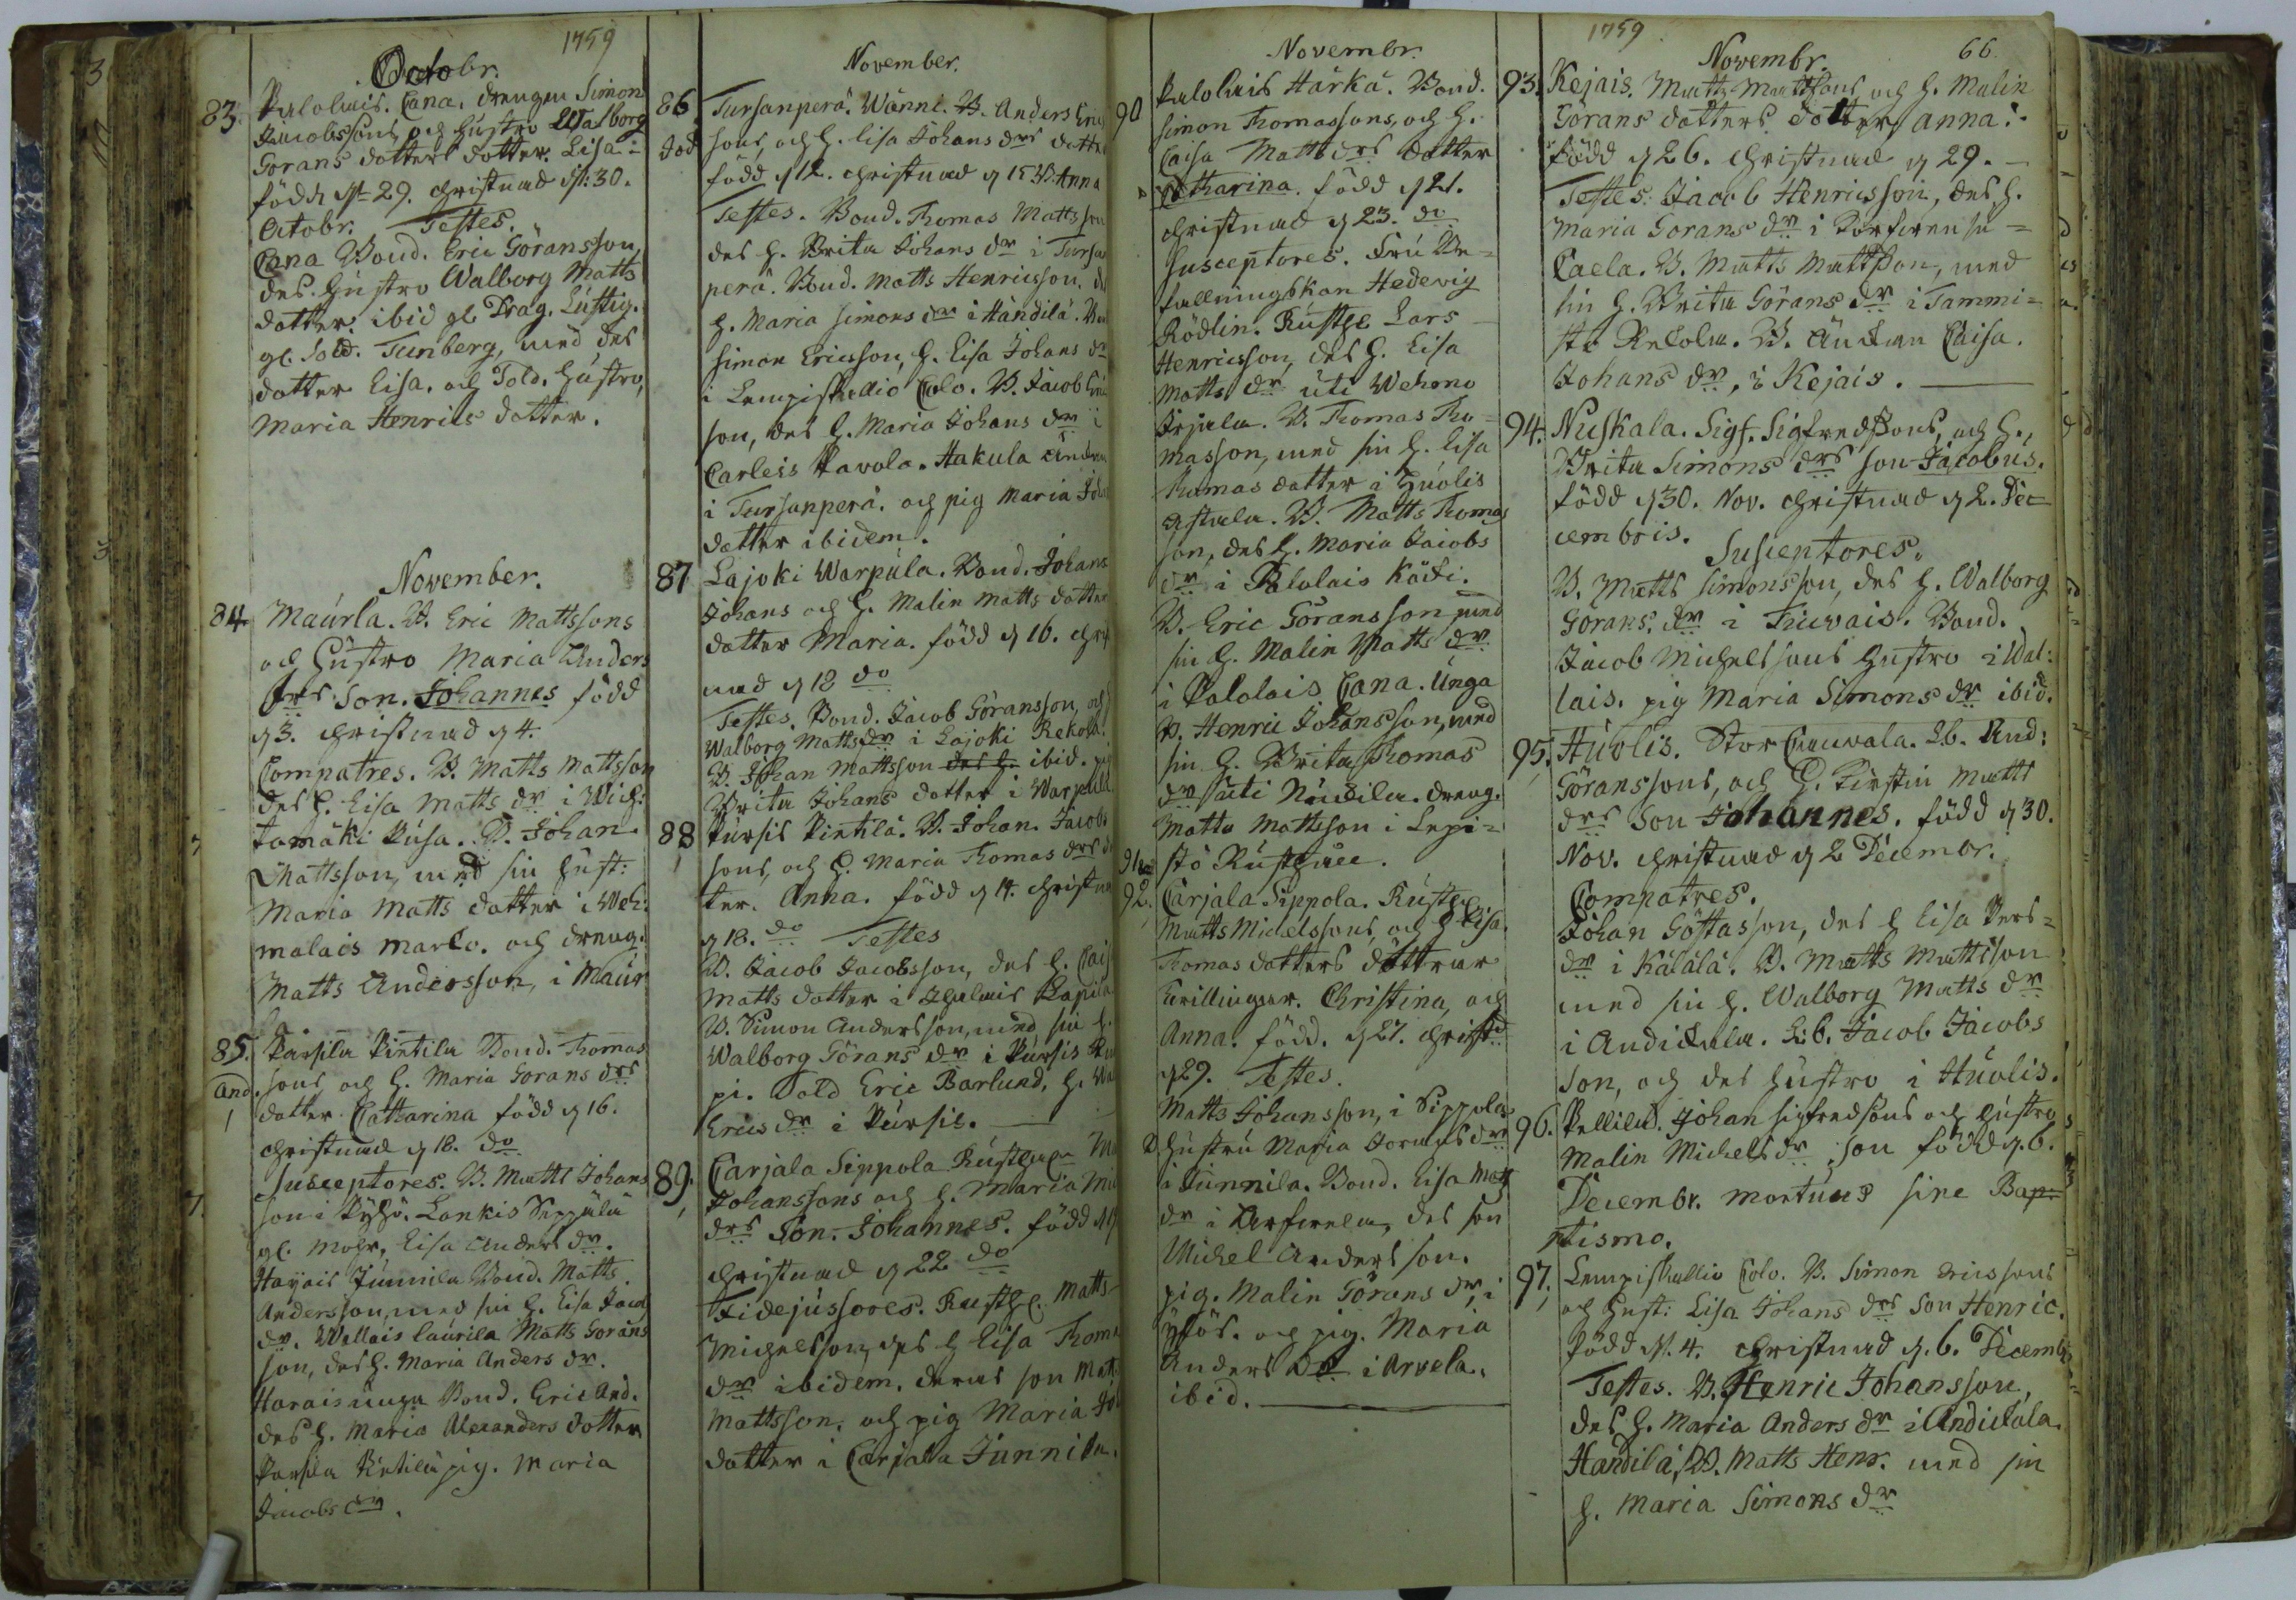 1759
Octobr.
83. Palolais. Cana. drengen Simon
Jacobssons och Hustro Walborg
Görans dotters dotter. Lisa
född d. 29. christnad d. 30.
Octobr. Testes.
Cana Bond. Eric Göransson
des Hustro Walborg Matts
dotter. ibid gl. Drag. Lustig.
gl. Sold. Tunberg, med des
dotter Lisa. och Sold. Hustro,
Maria Henrics dotter.
November.
84. Maurla. B. Eric Mattssons
och Hustro Maria Anders
drs Son. Johannes född
d 3. christnad d 4.
Compatres. B. Matts Mattsson
des h. Lisa Matts dr i Wich:
tamäki Pusa. B. Johan
Mattsson, med sin Hust:
Maria Matts dotter i Weh:
malais Marco. och dreng.
Matts Andersson, i Maur
la
85. Parsila Pintila Bond. Thomas
And. sons och h. Maria Görans drs
dotter Catharina född d 16.
christnad d 18. do
Susceptores. B. Matts Johans
son i Pyhö. Lankis Seppälä
gl. Mohr, Lisa Anders dr.
Hayais Junnila Bond. Matts
Andersson, med sin h. Lisa Jacobs
dr. Wallais Laurila Matts Görans
son, des h. Maria Anders dr.
Harais unga Bond. Eric And.
des h. Maria Alexanders dotter
Parsila Pintilä pig. Maria
Jacobs dr.
November.
86 Tursanperä. Wänni. B. Anders Erics
död sons, och h. Lisa Johans drs dotter
född d 12. christnad d 15 Anna
Testes. Bond. Thomas Mattsson
des h. Brita Johans dr i Tursan
perä. Bond. Matts Henricsson. des
h. Maria Simons dr i Händilä.
Simon Ericsson, h. Lisa Johans dr
i Lempiskallio Colo. B. Jacob
son, des h. Maria Johans dr i
Carleis Pavola. Hakula
i Tursanperä. och pig Maria
dotter ibidem.
87 Lajoki Warpula. Bond. Johans
Johans och h. Malin Matts dotter
dotter Maria. född d 16. christ
nad d 18 do
Testes. Bond. Jacob Göransson, och
Walborg Matts dr i Lajoki Rekola.
B. Johan Mattsson des h. ibid. pig
Brita Johans dotter i Warpula.
88 Pursis Pintilä. B. Johan Jacobs
sons, och h. Maria Thomas drs dot
ter. Anna. född d 14. christnad
d 18. do Testes
B. Jacob Jacobsson, des h. Caisa
Matts dotter i Ihalais
B. Simon Andersson, med sin h.
Walborg Görans dr i Pursis
pi. Sold Eric Barlund, h.
Erics dr i Pursis.
89. Carjala Sippola Rusth.
Johanssons och h. Maria
drs Son. Johannes. född d
christnad d 22 do
Fidejussores. Rusth. Matts
Michelsson, des h Lisa Thomas
dr ibidem. deras son Matts
Mattsson. och pig Maria
dotter i Carjala Junnila.
Novembr.
90 Palolais Härkä. Bond.
Simon Thomassons, och h.
Caisa Matts drs dotter
Catharina. född d 21.
christnad d 23. do
Susceptores. Fru Be-
fallningskan Hedevig
Rödlin. Rusth. Lars
Henricsson, des h. Lisa
Matts dr uti Wehmo
Irjala. B. Thomas Tho-
masson, med sin h. Lisa
Thomas dotter i Huolis
B. Matts Thomas
son, des h. Maria Jacobs
dr i Palolais Käki.
B. Eric Göransson med
sin h. Malin Matts dr
i Palolais Cana. Unga
B. Henric Johansson, med
sin h. Brita Thomas
dr uti Nuckila. dreng.
Matts Mattsson i Lepi-
stö Rusth.
91
92. Carjala Sippola. Rusth.
Matts Michelssons, och h Lisa
Thomas dotters döttrar
twillingar. Christina, och
Anna. född. d 27. christd
d 29. Testes.
Matts Johansson, i Sippola
Hustru Maria dr
i Junnila. Bond. Lisa Matts
dr i des son
Michel Andersson.
pig. Malin Görans dr, i
och pig. Maria
Anders dr i Arvela.
ibid.
1759 66
Novembr.
93. Kejais. Matts Mattssons och h. Malin
Görans dotters dotter Anna.
född d 26. christnad d 29.
Testes. Jacob Henricsson, des h.
Maria Görans dr i
Caela. B. Matts Mattsson, med
sin h. Brita Görans dr i Tammi-
sto Rekola. B. Änckan Caisa
Johans dr, i Kejais.
94. Nuskala. Sigf. Sigfredssons, och h.
Brita Simons drs son Jacobus.
född d 30. Nov. christnad d 2. Dec
cembris.
Susceptores.
B. Matts Simonsson, des h. Walborg
Görans dr i Bond.
Jacob Michelssons Hustro i Wal:
lais. pig Maria Simons dr ibid.
95. Huolis. Stor Cauvala. Lb. And:
Göranssons, och h. Kirstin Matts
drs son Johannes. född d 30.
Nov. christnad d 2 Decembr.
Compatres.
Johan Göstasson, des h Lisa Pers-
dr i Kälälä. B. Matts Mattsson
med sin h. Walborg Matts dr
i Andickala. Lb. Jacob Jacobs
son, och des hustro i Huolis.
96. Pellilä. Johan Sigfredssons och hustro
Malin Michels dr son född d. 6.
Decembr. mortuus sine Bap-
tismo.
97. Lempiskallio Colo. B. Simon Ericssons
och Hust: Lisa Johans drs son Henric.
född d. 4. christnad d. 6. Decembr
Testes. B. Henric Johansson,
des h. Maria Anders dr i Andickala.
Handila, B. Matts Henr. med sin
h. Maria Simons dr